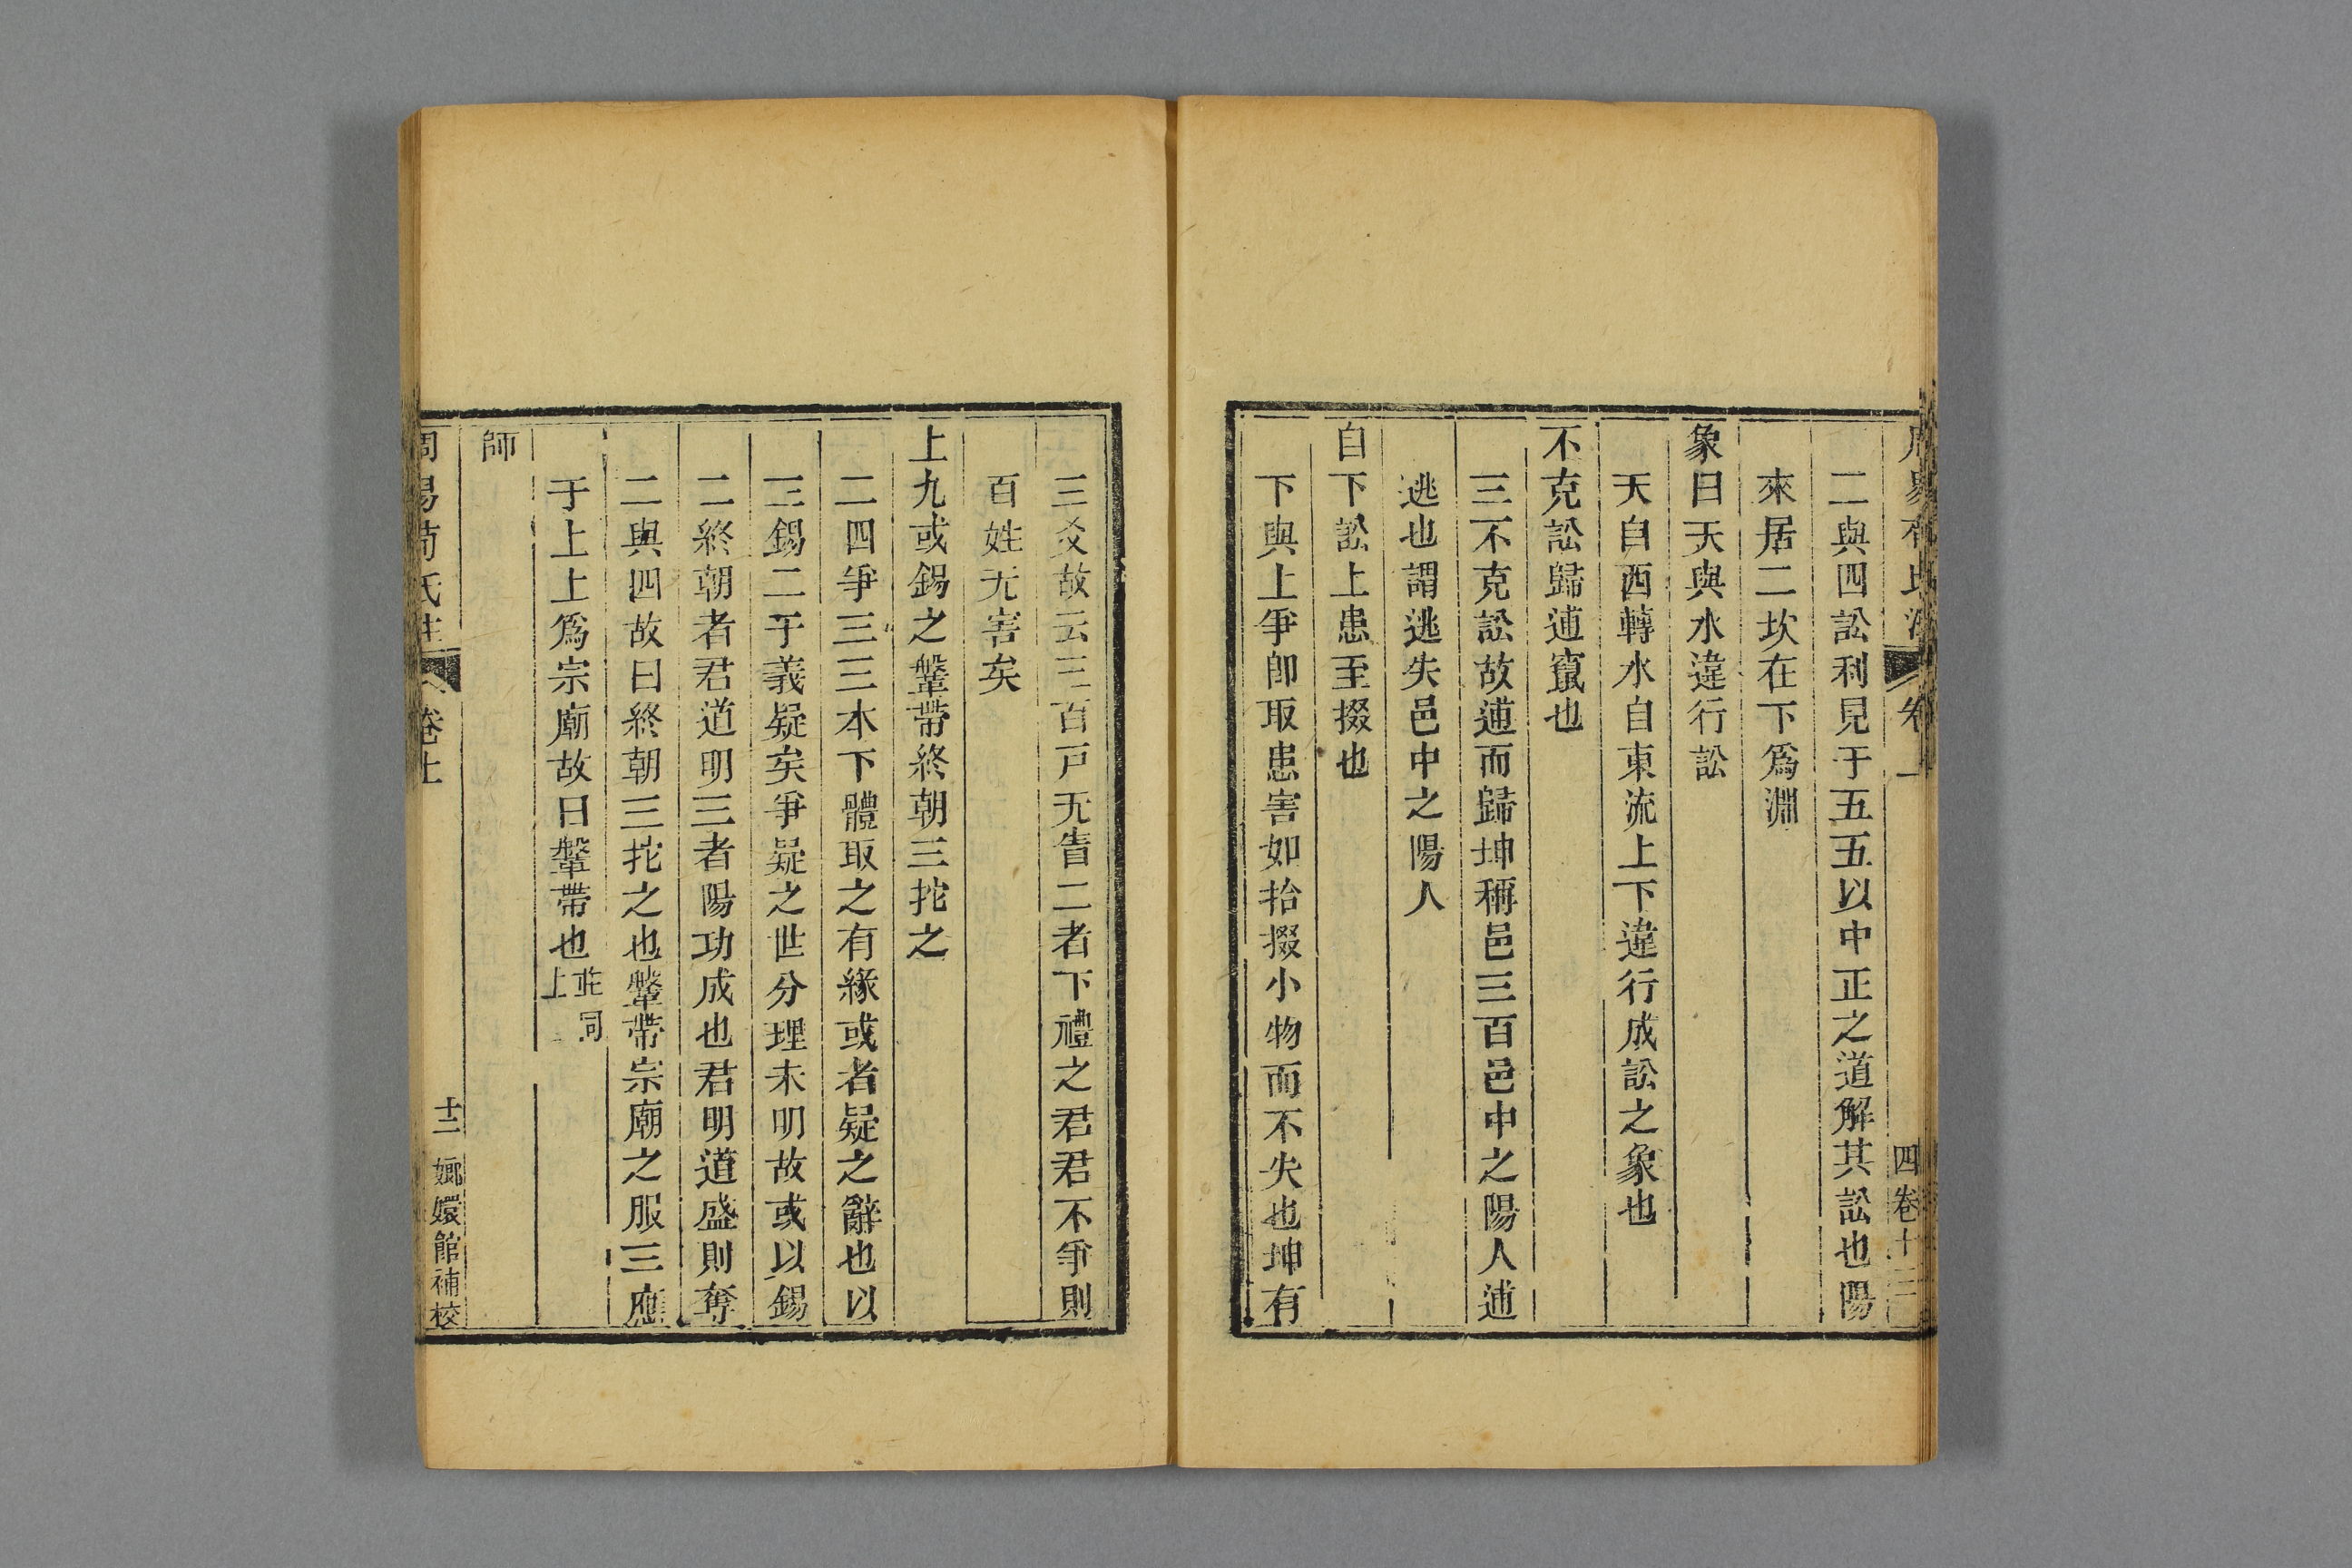 二與四訟利見于五五以中正之道解其訟也陽
來居二坎在下爲淵
象曰天與水違行訟
天自西轉水自東流上下違行成訟之象也
不克訟歸逋竄也
三不克訟故逋而歸坤稱邑三百邑中之陽人逋
逃也謂逃失邑中之陽人
自下訟上患至掇也
下與上爭卽取患害如拾掇小物而不失也坤有
三爻故云三百戶无眚二者下禮之君君不爭則
百姓无害矣
上九或錫之鞶帶終朝三拕之
二四爭三三本下體取之有緣或者疑之辭也以
三錫二于義疑矣爭疑之世分理未明故或以錫
二終朝者君道明三者陽功成也君明道盛則奪
二與四故曰終朝三拕之也鞶帶宗廟之服三應
于上上爲宗廟故曰鞶帶也並同上
師
周易荀氏注 卷上 十二 嫏嬛館補校